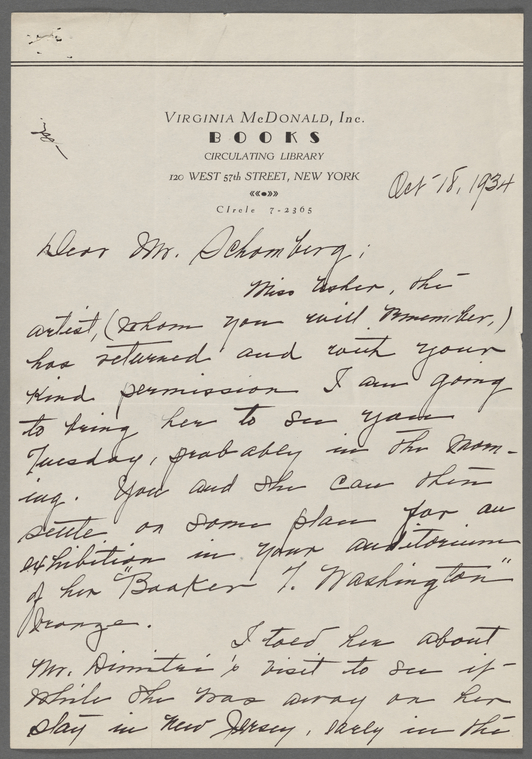 VIRGINIA McDONALD, Inc.
BOOKS
CIRCULATING LIBRARY
120 WEST 57th STREET, NEW YORK
CIrcle 7-2365
Oct 18, 1934
Dear Mr. Schomberg;
Miss Usher, the
artist, (whom you will remember,)
has returned and with your
kind permission I am going
to bring her to see you
Tuesday, probably in the morn-
ing. You and she can then
settle on some plan for an
exhibition in your auditorium
of her "Booker T. Washington"
bronze.
I told her about
Mr. Dimitri's visit to see it
while she was away on her
stay in New Jersey, early in the